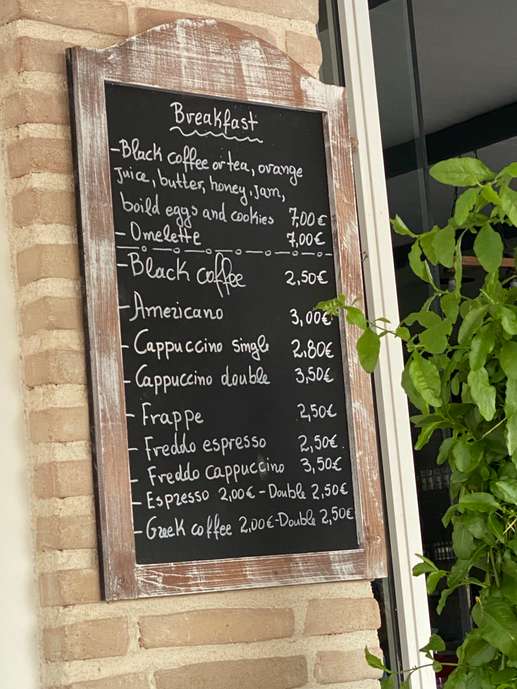 Breakfast
-Black coffee or tea, orange
juice, butter, honey, jam,
boild eggs and cookies 7,00€
- Omelette 7,00€
-Black coffee 2,50€
-Americano 3,00€
- Cappuccino single 2,80€
- Cappuccino double 3,50€
- Frappe 2,50€
- Freddo espresso 2,50€
- Freddo cappuccino 3,50€
- Espresso 2,00€ - Double 2,50€
- Greek coffee 2,00€-Double 2,50€